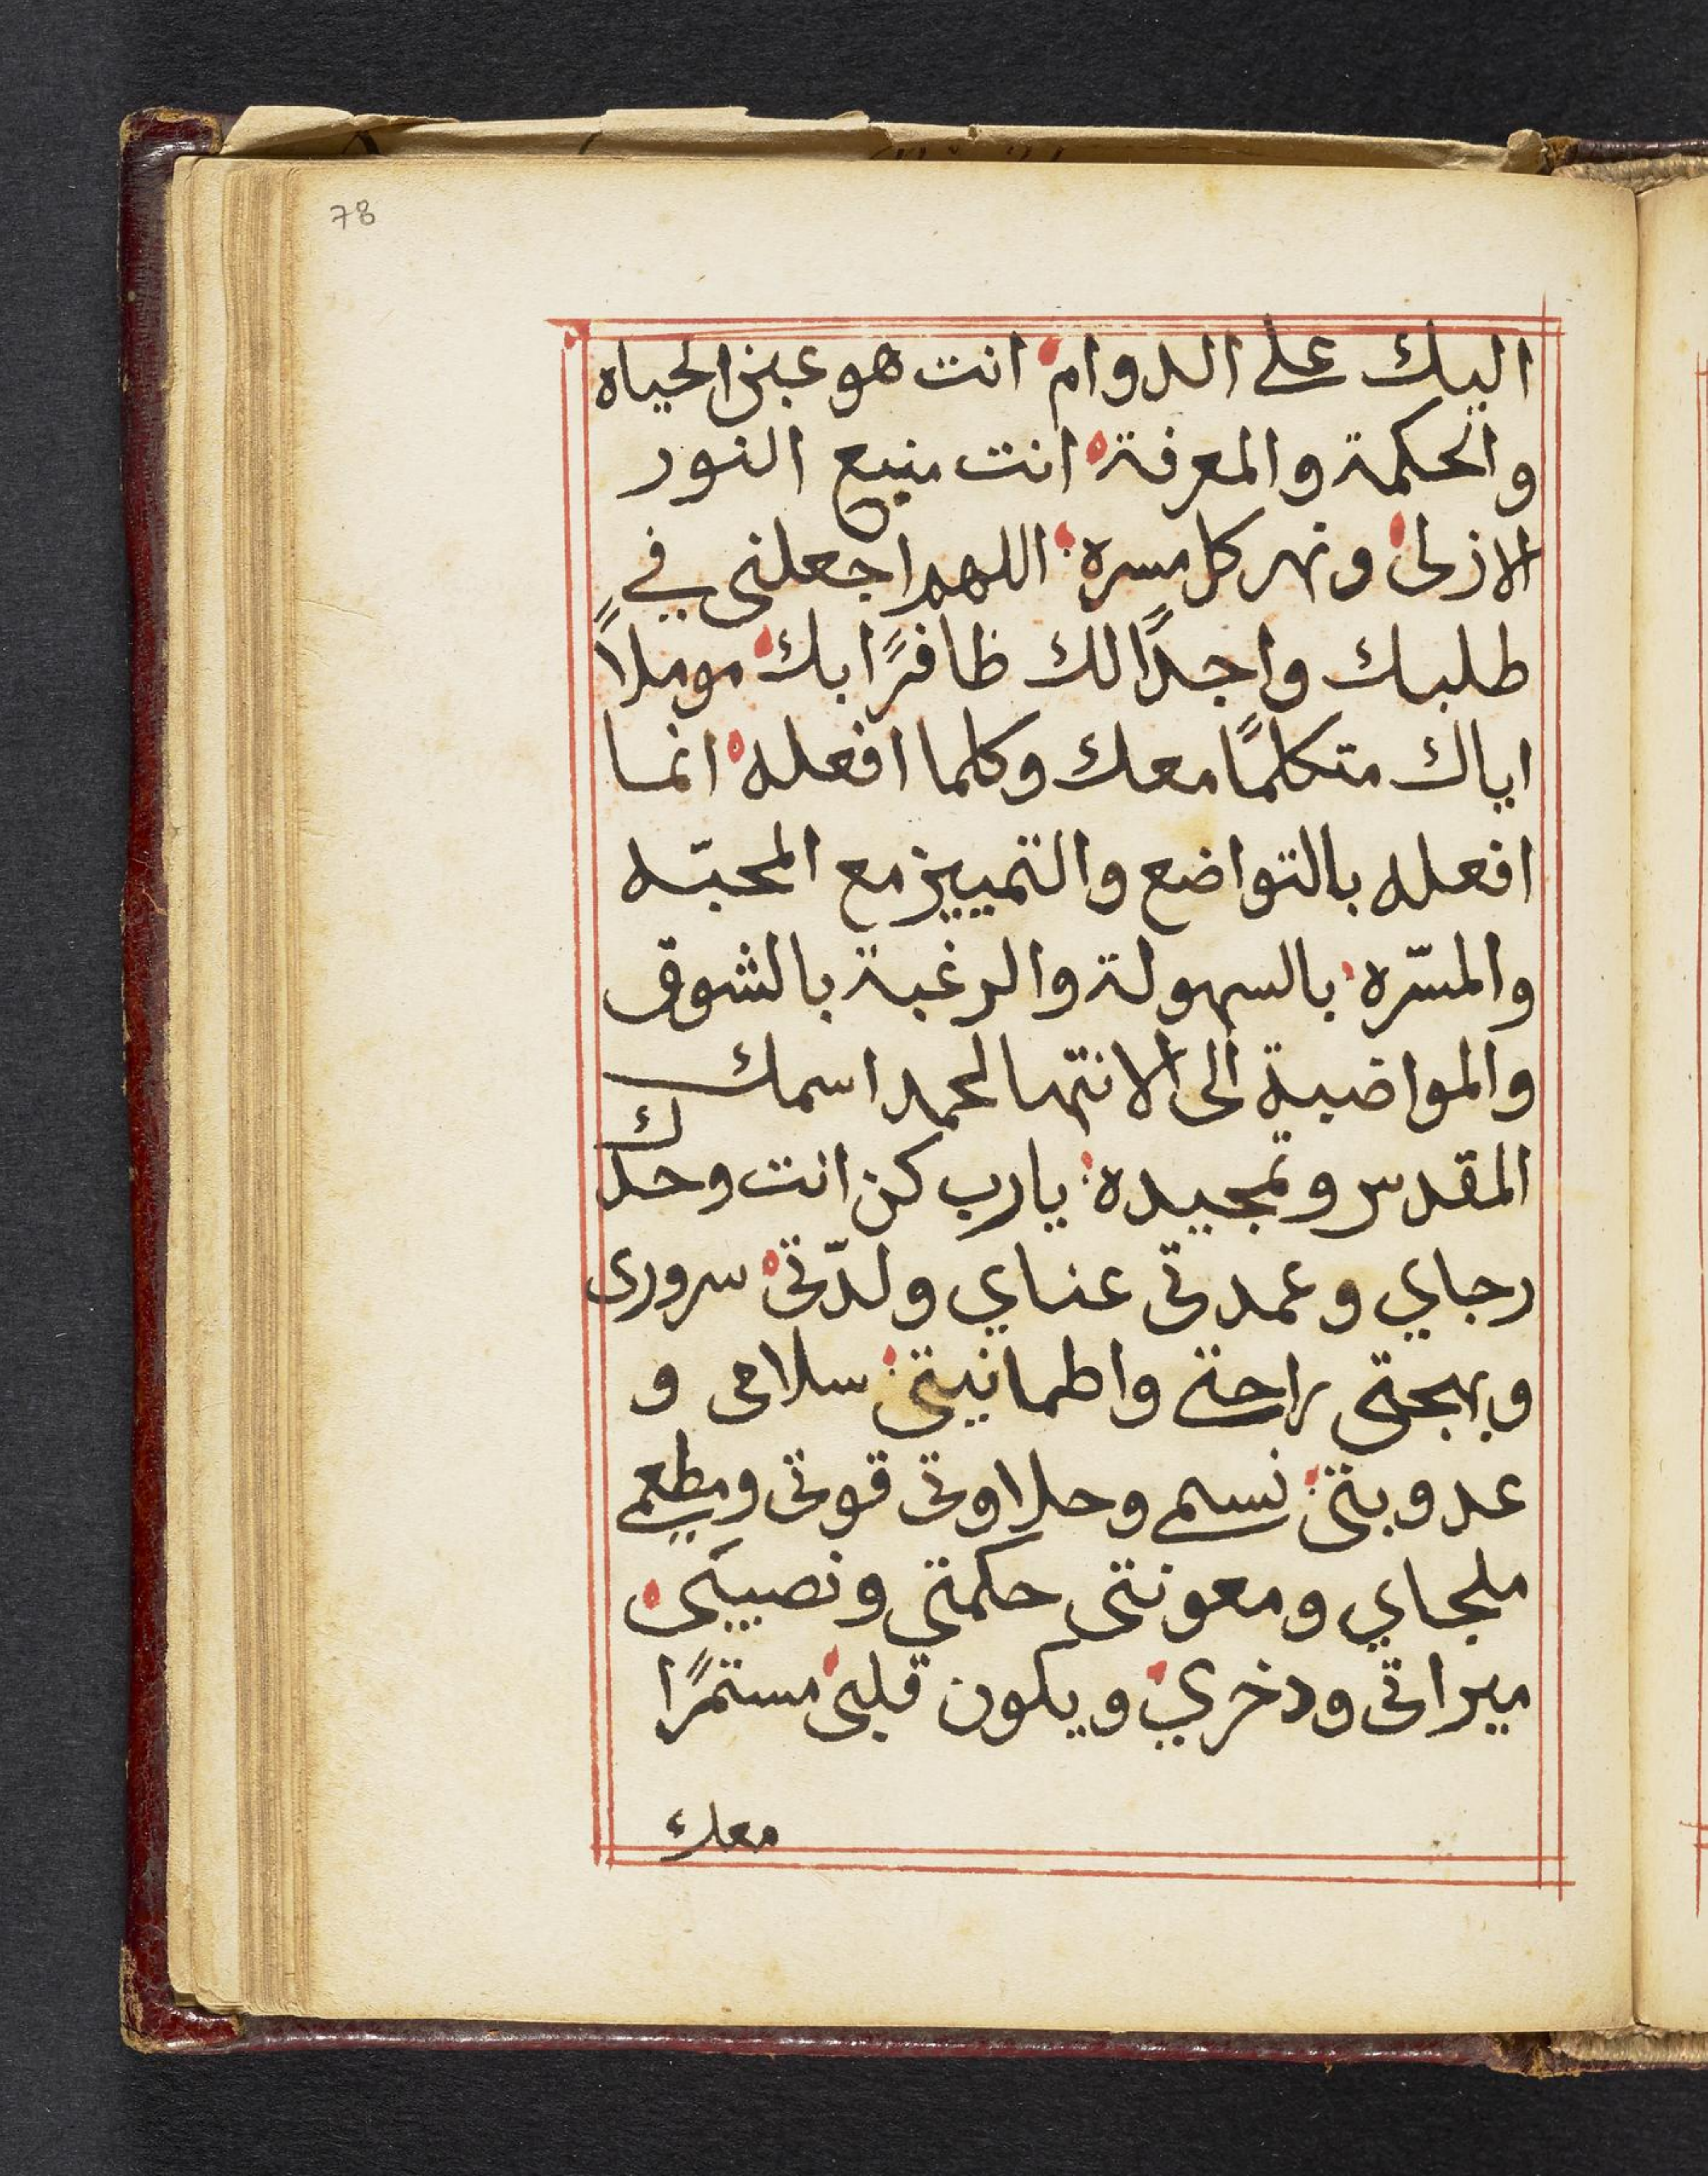 78
اليك على الدوام انت هو عين الحياه
والحكمة والمعرفة انت منبع النور
الازلى ونهر كل مسره اللهم اجعلنى في
طلبك واجدًا لك ظافرًا بك موملاً
اياك متكلمًا معك وكلما افعله انما
افعله بالتواضع والتمييز مع المحبّه
والمسّره بالسهولة والرغبة بالشوق
والمواضبة الى الانتها لحمد اسمك
المقدس وتمجيده يارب كن انت وحدك
رجاي وعمدتى عناي ولدّتى سرورى
وبهجتى راحتى واطمانيتى سلامى و
عدوبتى نسمى وحلاوتى قوتى ومطعمى
ملجاي ومعونتى حكمتى ونصيبى
ميراتى ودخري ويكون قلبى مستمرًا
معك